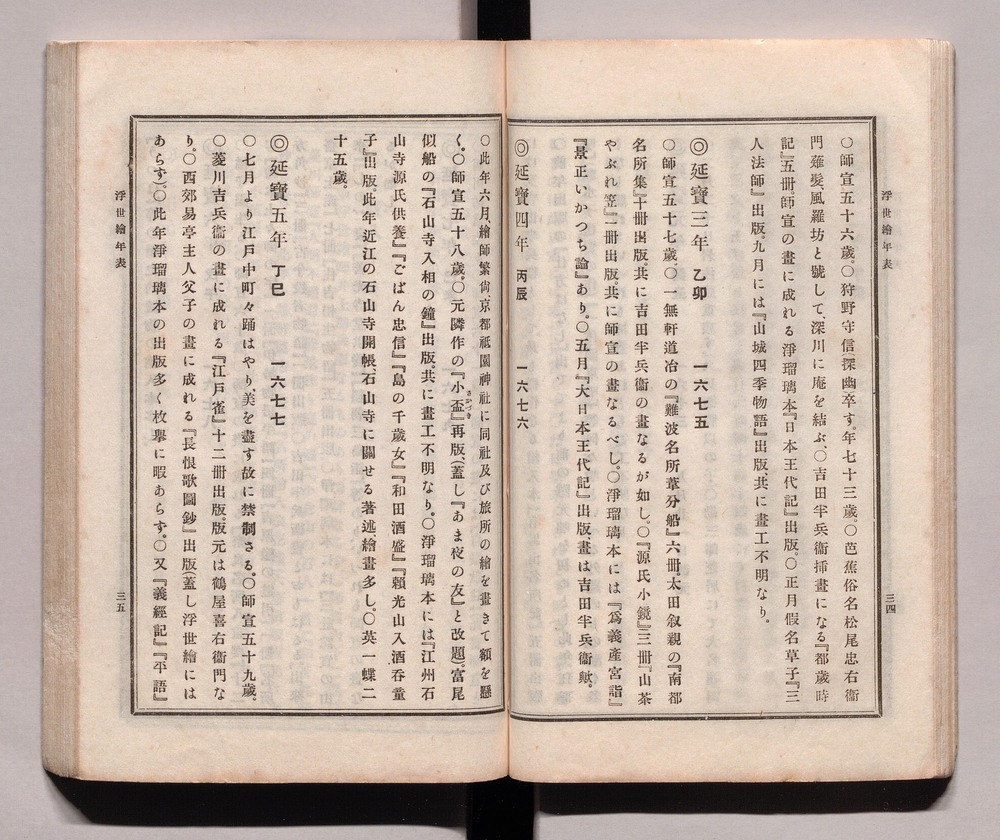 浮世繪年表
三四
〇師宣五十六歲。〇狩野守信(探幽卒す。年七十三歲。〇芭蕉俗名松尾忠右衞
門薙髮、風羅坊と號して、深川に庵を結ぶ、〇吉田半兵衞揷畫になる『都歲時
記』五册。師宣の畫に成れる淨瑠璃本『日本王代記』出版。〇正月假名草子『三
人法師』出版。九月には『山城四季物語』出版、共に畫工不明なり。
◎延寶三年 乙卯 一六七五
〇師宣五十七歲、〇一無軒道冶の『難波名所葦分船』六册。太田叙親の『南都
名所集』十册出版。共に吉田半兵衞の畫なるが如し。〇『源氏小鏡』三册『山茶
やぶれ笠』二册出版。共に師宣の畫なるべし。〇淨瑠璃本には『爲義產宮詣』
『景正いかつち論』あり。〇五月『大日本王代記』出版、畫は吉田半兵衞歟。
◎延寶四年 丙辰 一六七六
〇此年六月、繪師繁尙京都祇園神社に同社及び旅所の繪を畫きて額を懸
く。〇師宣五十八歲。〇元隣作の『小盃』さかづき再版、(蓋し『あま夜の友』と改題)。富尾
似船の『石山寺入相の鐘』出版。共に畫工不明なり。〇淨瑠璃本には『江州石
山寺源氏供養』『ごばん忠信』『島の千歲女』『和田酒盛』『賴光山入酒吞童
子』出版。此年近江の石山寺開帳、石山寺に關せる著述、繪畫多し。〇英一蝶二
十五歲。
◎延寶五年 丁巳 一六七七
〇七月より江戶中町々踊はやり、美を盡す故に禁制さる。〇師宣五十九歲。
〇菱川吉兵衞の畫に成れる『江戶雀』十二册出版。版元は鶴屋喜右衞門な
り。〇西郊易亭主人父子の畫に成れる『長恨歌圖鈔』出版(蓋し浮世繪には
あらず)。〇此年淨瑠璃本の出版多く枚擧に暇あらず。〇又『義經記』『平語』
浮世繪年表
三五